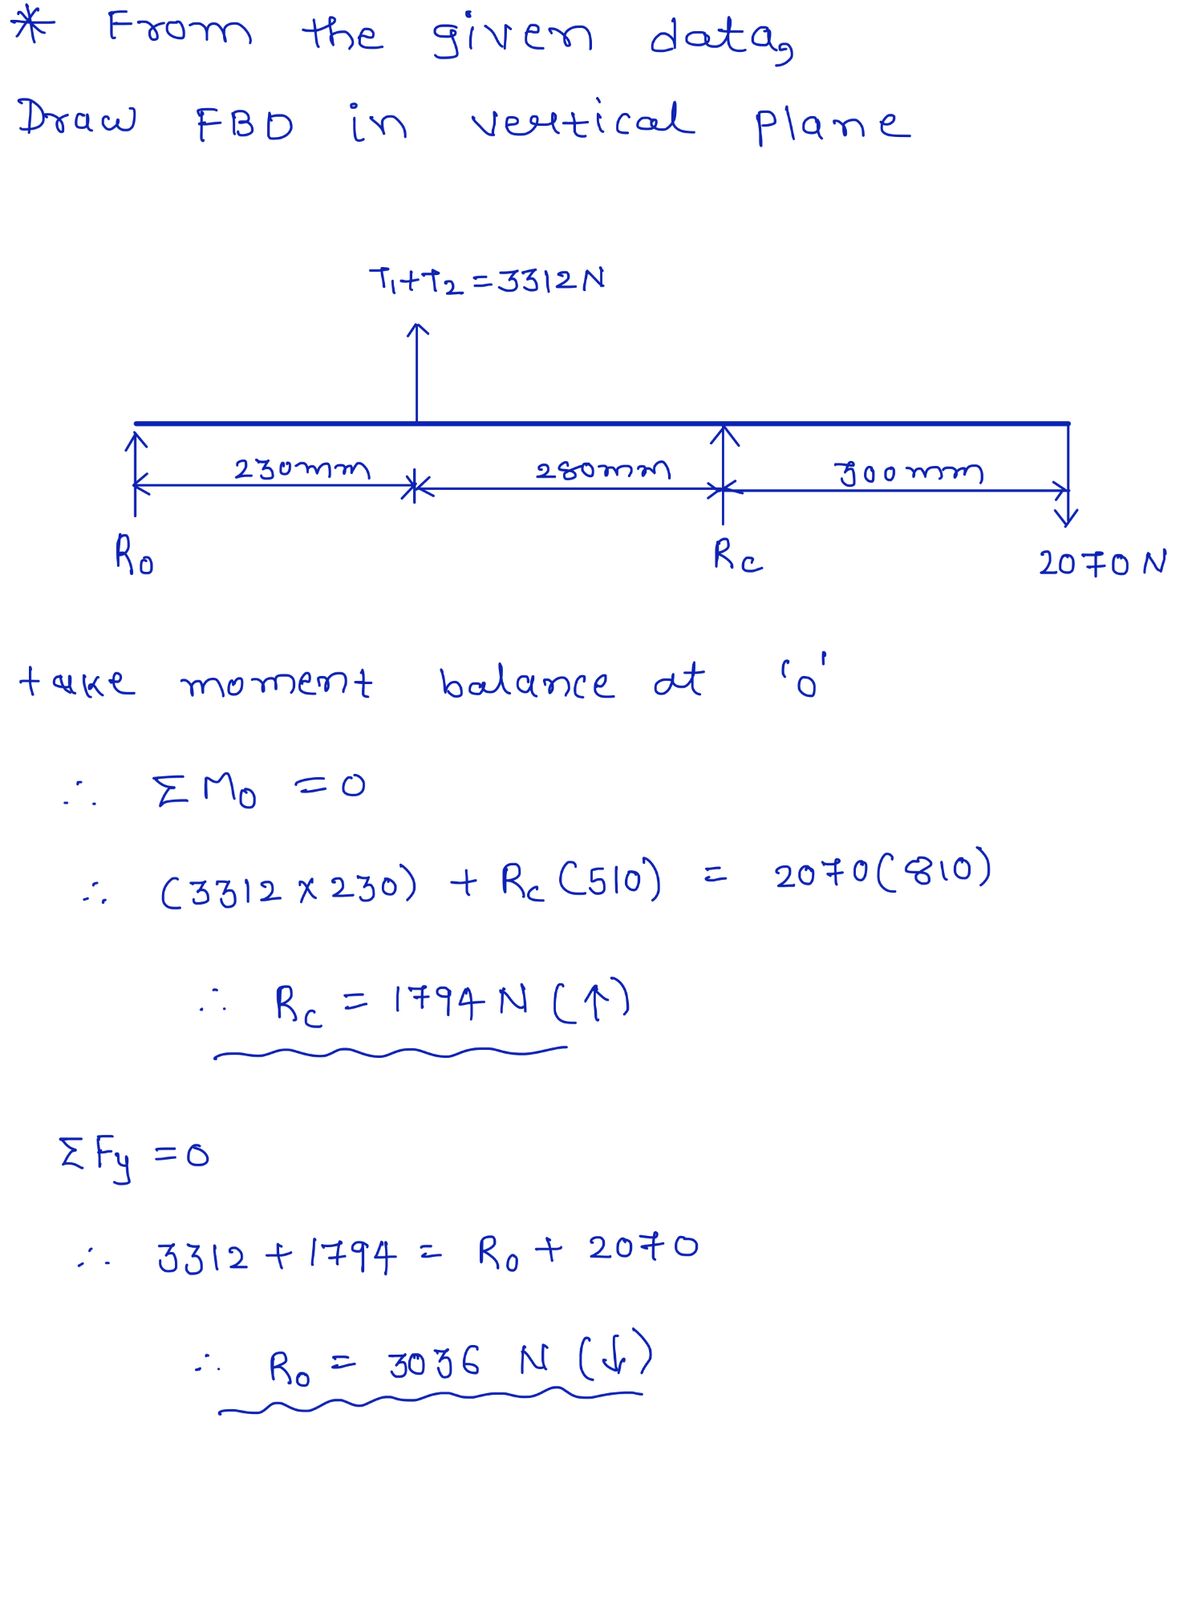 * From the given data,
Draw FBD in vertical plane
T₁+T₂ = 3312 N
230mm 280mm 300mm
R₀ Rc 2070 N
take moment balance at 'o'
∴ ΣM₀ = 0
∴ (3312 × 230) + Rc (510) = 2070(810)
∴ Rc = 1794 N (↑)
ΣFy = 0
∴ 3312 + 1794 = R₀ + 2070
∴ R₀ = 3036 N (↓)